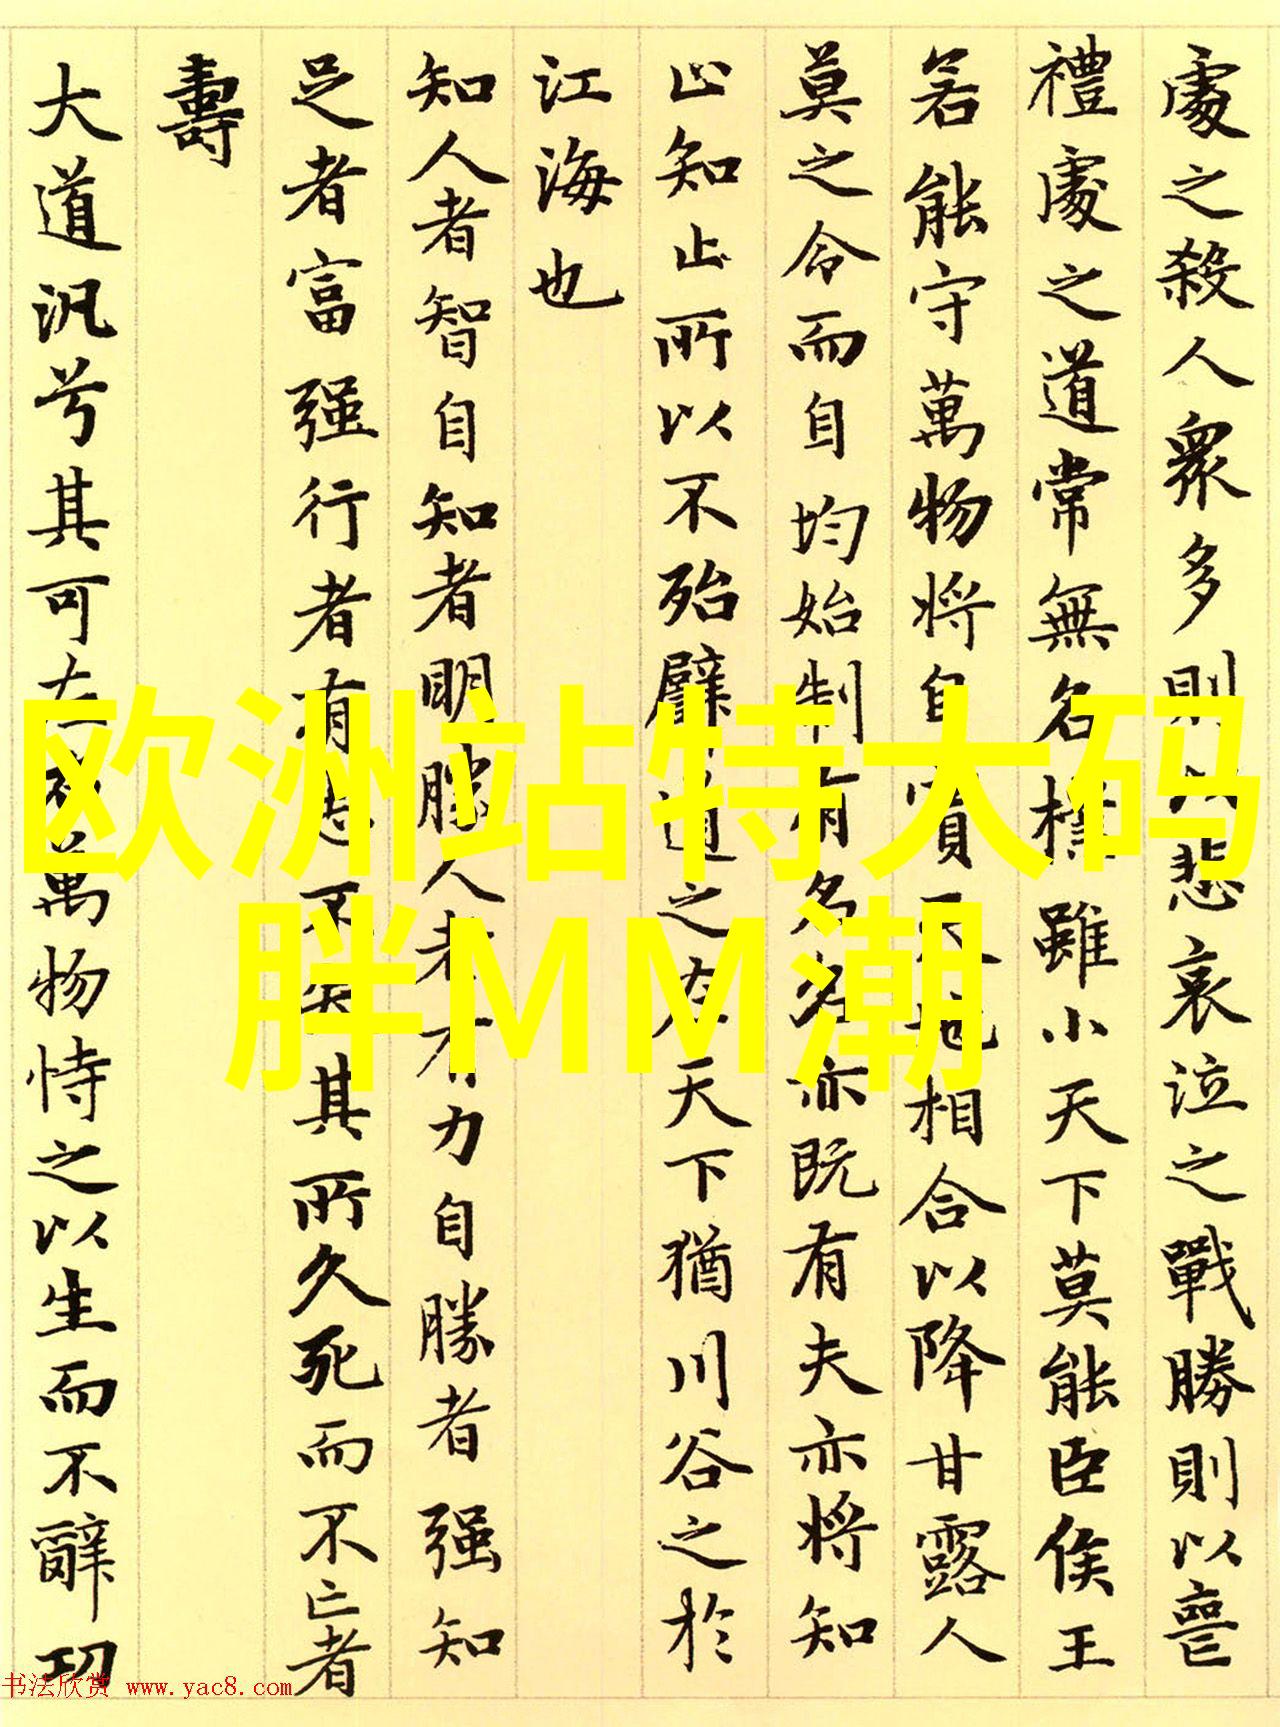 處之殺人衆多則以悲哀泣之戰勝則以喪
禮處之道常無名樸雖小天下莫能臣侯王
若能守萬物將自賓天地相合以降甘露人
莫之令而自均始制有名名亦既有夫亦將知
止知止所以不殆譬道之在天下猶川谷之於
江海也
知人者智自知者明勝人者有力自勝者强知
足者富强行者有志不失其所久死而不亡者
壽
大道汎兮其可左右萬物恃之以生而不辭功
欧洲站特大码
胖MM潮
书法欣赏 www.yac8.com